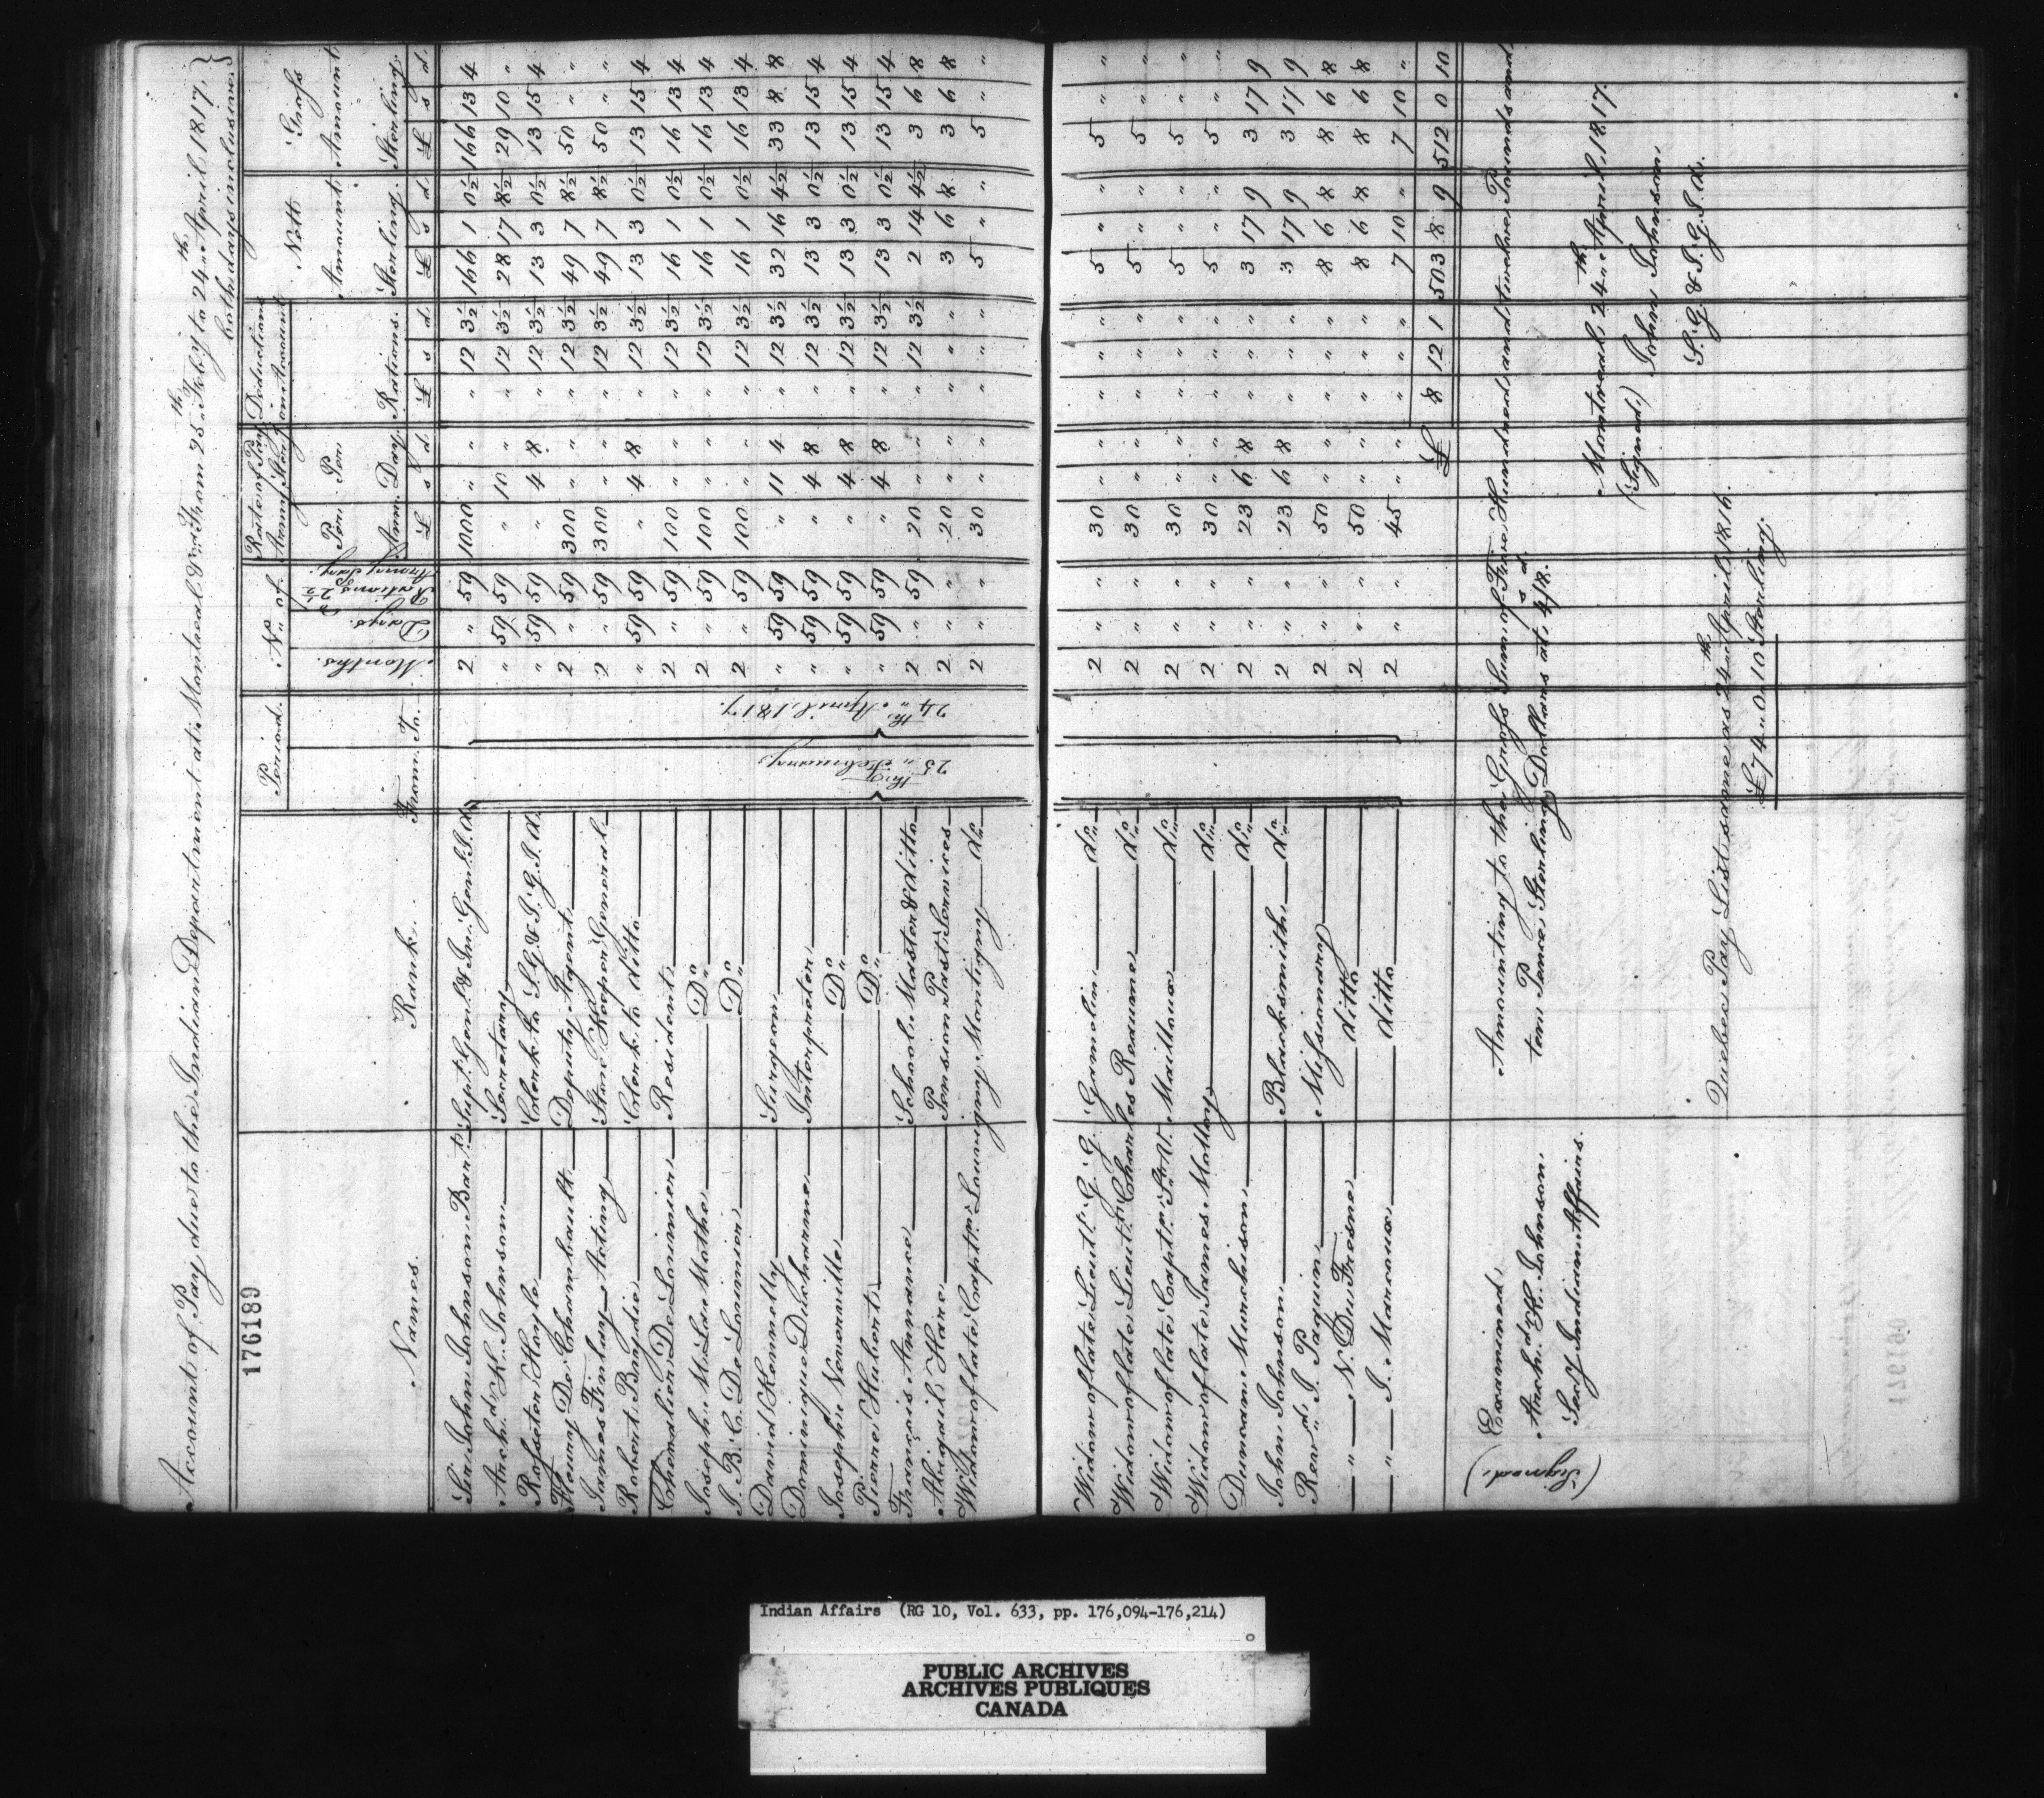 Account of Pay due to the Indian Department at Montreal &c. &c. from 25th Feby to 24th April 1817, }
both days inclusive }
176189
Names. Rank. Period. No. of Rates of Pay Army Sterlg Deductions on Account Nett Amount Sterling. Gross Amount Sterling.
From To Months. Days. Rations 2½ Army Pay. Per Ann. Per Day. Rations.
£ s d £ s d £ s d £ s d
25th February 24th April, 1817.
Sir John Johnson Bart. Supt. Genl. & In. Genl. I. A. 2 " 59 1000 " " " 12 3½ 166 1 0½ 166 13 4
Archd. K. Johnson Secretary " 59 59 " 10 " " 12 3½ 28 17 8½ 29 10 "
Rosseter Hoyle Clerk to S. G. & I. G. I. A. " 59 59 " 4 8 " 12 3½ 13 3 0½ 13 15 4
Fleury De Chambault Deputy Agent 2 " 59 300 " " " 12 3½ 49 7 8½ 50 " "
James Finlay Acting Store Keeper General 2 " 59 300 " " " 12 3½ 49 7 8½ 50 " "
Robert Baydie Clerk to ditto " 59 59 " 4 8 " 12 3½ 13 3 0½ 13 15 4
Chevalier De Lorimier Resident 2 " 59 100 " " " 12 3½ 16 1 0½ 16 13 4
Joseph M. La Mothe Do 2 " 59 100 " " " 12 3½ 16 1 0½ 16 13 4
J. B. C. De Lorimier Do 2 " 59 100 " " " 12 3½ 16 1 0½ 16 13 4
David Kennelly Surgeon " 59 59 " 11 4 " 12 3½ 32 16 4½ 33 8 8
Dominique Ducharme Interpreter " 59 59 " 4 8 " 12 3½ 13 3 0½ 13 15 4
Joseph Neuville Do " 59 59 " 4 8 " 12 3½ 13 3 0½ 13 15 4
Pierre Hubert Do " 59 59 " 4 8 " 12 3½ 13 3 0½ 13 15 4
François Annance School Master & ditto 2 " 59 20 " " " 12 3½ 2 14 4½ 3 6 8
Abigail Hare Pension Past Services 2 " " 20 " " " " " 3 6 8 3 6 8
Widow of late Captn. Louvigny Montigny do 2 " " 30 " " " " " 5 " " 5 " "
Widow of late Lieut. G. G. Gamelin do 2 " " 30 " " " " " 5 " " 5 " "
Widow of late Lieut. Charles Reaume do 2 " " 30 " " " " " 5 " " 5 " "
Widow of late Captn. Mailloux do 2 " " 30 " " " " " 5 " " 5 " "
Widow of late James Matloy do 2 " " 30 " " " " " 5 " " 5 " "
Duncan Murchison do 2 " " 23 6 8 " " " 3 17 9 3 17 9
John Johnson Blacksmith do 2 " " 23 6 8 " " " 3 17 9 3 17 9
Revd. J. Paquin Missionary 2 " " 50 " " " " " 8 6 8 8 6 8
" N. Du Fresne ditto 2 " " 50 " " " " " 8 6 8 8 6 8
" J. Marcoux ditto 2 " " 45 " " " " " 7 10 " 7 10 "
£ 8 12 1 503 8 9 512 0 10
Amounting to the Gross Sum of Five Hundred and twelve Pounds and
ten Pence Sterling Dollars at 4s/8d.
Montreal 24th April, 1817.
(Signed) John Johnson
S. G. & I. G. I. A.
Examined,
(Signed) Archd. K. Johnson
Secy Indian Affairs.
Quebec Pay List same as 24th April 1816.
£74.0.10 Sterling.
Indian Affairs (RG 10, Vol. 633, pp. 176,094-176,214)
PUBLIC ARCHIVES
ARCHIVES PUBLIQUES
CANADA